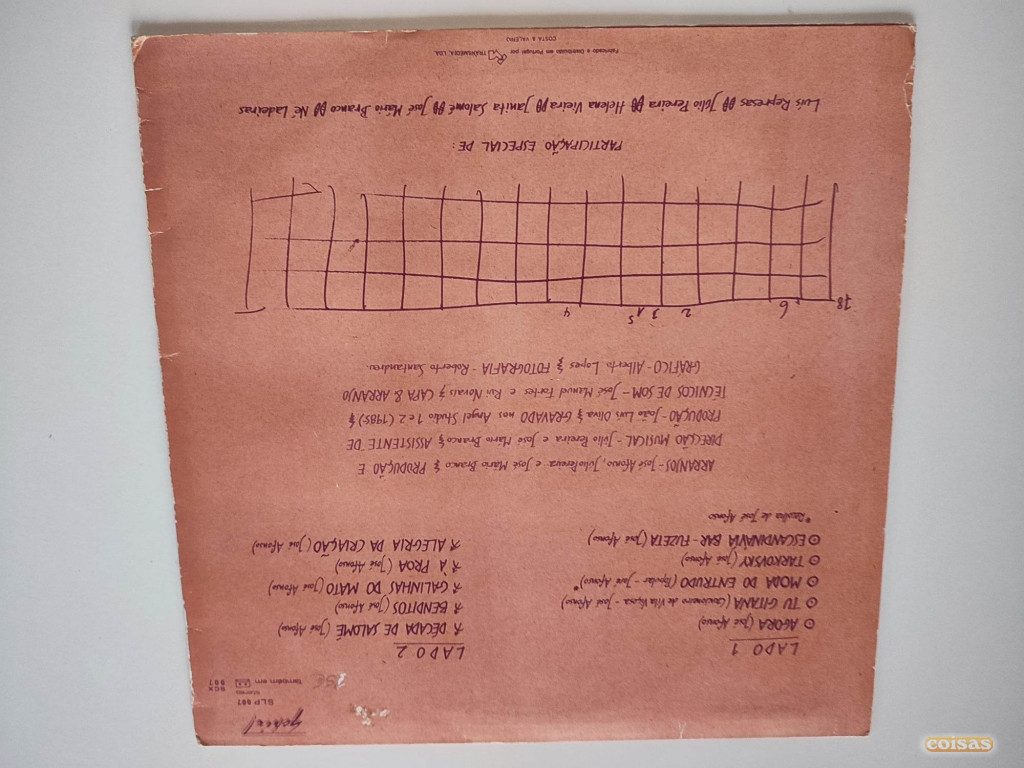 SLP 907
Stereo
também em
SCX
907
LADO 1
AGORA (José Afonso)
TU GITANA (Cancioneiro de Vila Viçosa - José Afonso)
MODA DO ENTRUDO (Popular - José Afonso)*
TARKOVSKY (José Afonso)
ESCANDINAVIA BAR - FUZETA (José Afonso)
*Recolha de José Afonso
LADO 2
DÉCADA DE SALOMÉ (José Afonso)
BENDITOS (José Afonso)
GALINHAS DO MATO (José Afonso)
A PROA (José Afonso)
ALEGRIA DA CRIAÇÃO (José Afonso)
ARRANJOS - José Afonso, Júlio Pereira e José Mário Branco PRODUÇÃO E
DIRECÇÃO MUSICAL - Júlio Pereira e José Mário Branco ASSISTENTE DE
PRODUÇÃO - João Luis Oliva GRAVADO nos Angel Studio 1 e 2 (1985)
TECNICOS DE SOM - José Manuel Fortes e Rui Novais CAPA & ARRANJO
GRÁFICO - Alberto Lopes FOTOGRAFIA - Roberto Santandreu.
18 6 2 3 1 5 4
PARTICIPAÇÃO ESPECIAL DE:
Luís Represas Júlio Pereira Helena Vieira Janita Salomé José Mário Branco Né Ladeiras
Fabricado e Distribuído em Portugal por TRANSMÉDIA, LDA.
COSTA & VALÉRIO
coisas